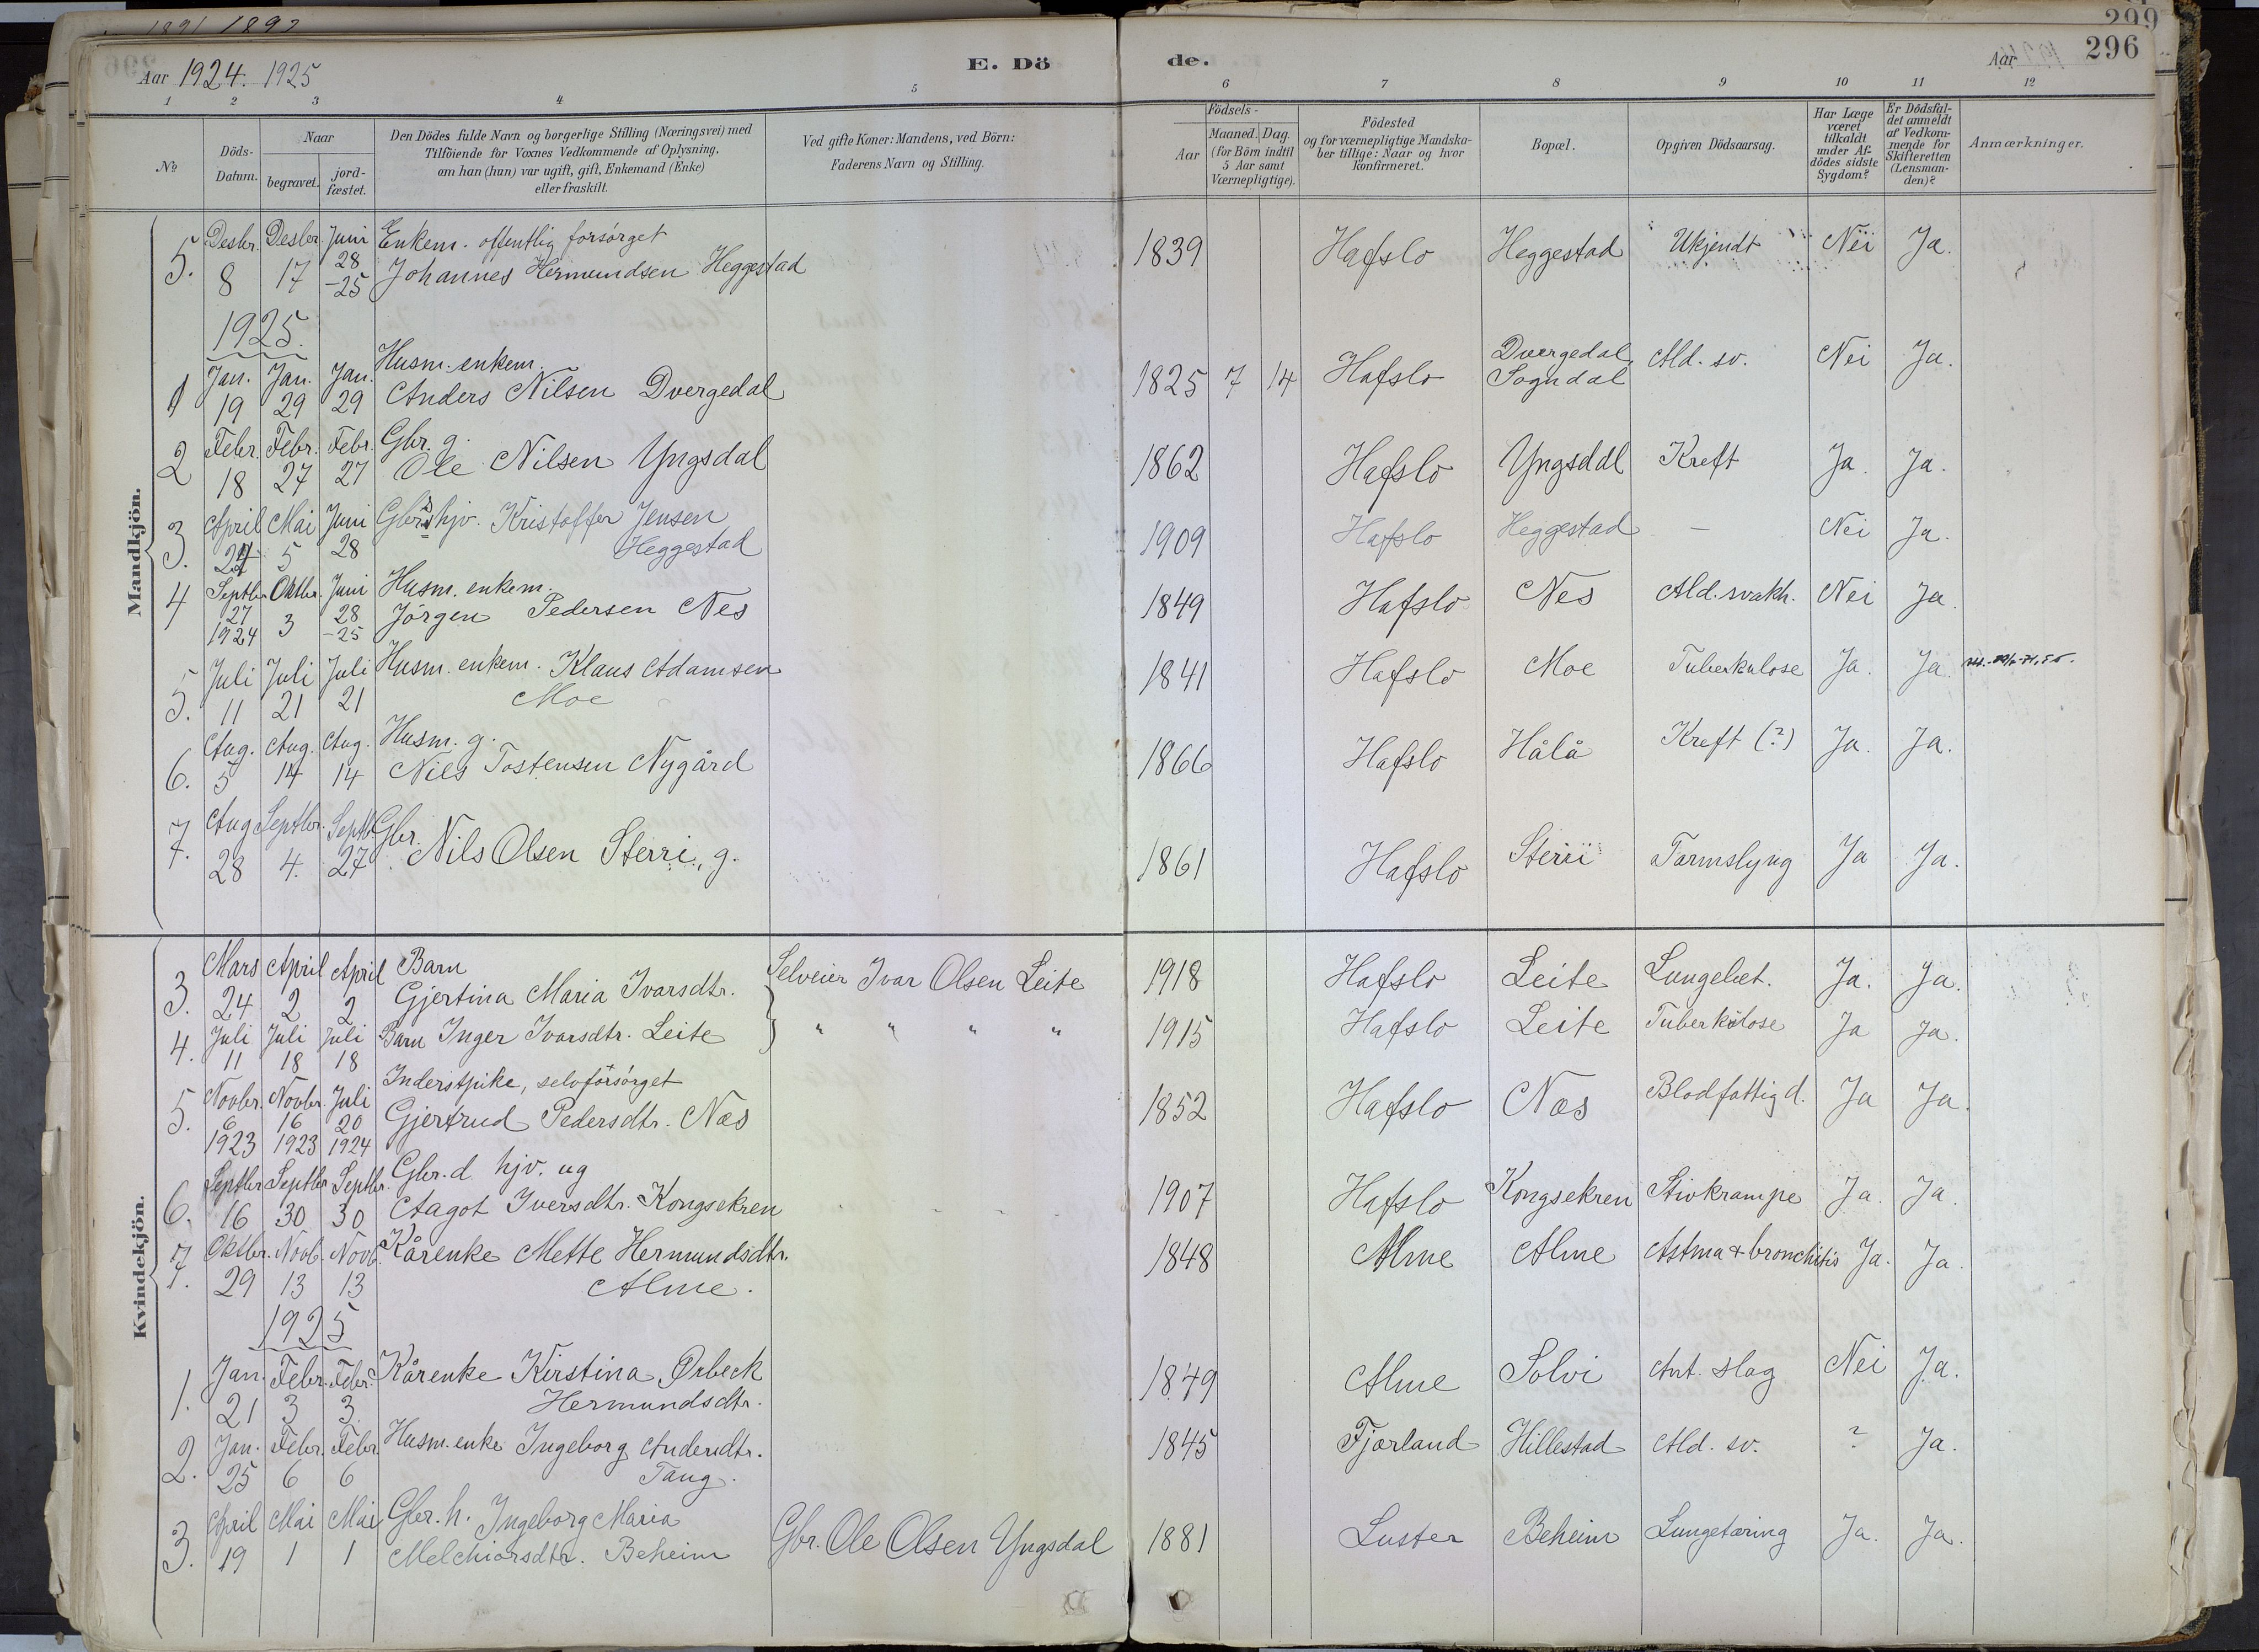 1891 1892
299
296
Aar 1924. 1925
E. Dö
de.
Aar
1 2 3 4 5 6 7 8 9 10 11 12
No
Döds-Datum.
Naar
begravet.
jord-fæstet.
Den Dödes fulde Navn og borgerlige Stilling (Næringsvei) med
Tilföiende for Voxnes Vedkommende af Oplysning,
om han (hun) var ugift, gift, Enkemand (Enke)
eller fraskilt.
Ved gifte Koner: Mandens, ved Börn:
Faderens Navn og Stilling.
Födsels-
Aar
Maaned. Dag.
(for Börn indtil
5 Aar samt
Værnepligtige).
Födested
og for værnepligtige Mandska-
ber tillige: Naar og hvor
konfirmeret.
Bopæl.
Opgiven Dödsaarsag.
Har Læge
været
tilkaldt
under Af-
dödes sidste
Sygdom?
Er Dödsfal-
det anmeldt
af Vedkom-
mende for
Skifteretten
(Lensman-
den)?
Anmærkninger.
Mandkjön.
5. Desbr. 8 Desbr. 17 Juni 28 -25 Enkem. offentlig forsörget
Johannes Hermundsen Heggestad 1839 Hafslo Heggestad Ukjendt Nei Ja.
1925.
1 Jan. 19 Jan. 29 Jan. 29 Husm. enkem.
Anders Nilsen Dvergedal 1825 7 14 Hafslo Dvergedal, Sogndal Ald. sv. Nei Ja.
2 Febr. 18 Febr. 27 Febr. 27 Gbr. g.
Ole Nilsen Yngsdal 1862 Hafslo Yngsdal Kreft Ja. Ja.
3. April 24 Mai 5 Juni 28 Gbrs hjv. Kristoffer Jensen
Heggestad 1909 Hafslo Heggestad — Nei Ja.
4 Septbr. 27 1924 Oktbr. 3 Juni 28 -25 Husm. enkem.
Jörgen Pedersen Nes 1849 Hafslo Nes Ald. svakh. Nei Ja.
5. Juli 11 Juli 21 Juli 21 Husm. enkem. Klaus Adamsen
Moe 1841 Hafslo Moe Tuberkulose Ja. Ja.
6. Aug. 5 Aug. 14 Aug. 14 Husm. g.
Nils Tostensen Nygård 1866 Hafslo Hålå Kreft (?) Ja. Ja.
7. Aug 28 Septbr. 4. Septb. 27 Gbr.
Nils Olsen Sterri, g. 1861 Hafslo Sterri Tarmslyng Ja Ja.
Kvindekjön.
3. Mars 24 April 2 April 2 Barn
Gjertina Maria Ivarsdtr. Selveier Ivar Olsen Leite 1918 Hafslo Leite Lungebet. Ja. Ja.
4. Juli 11 Juli 18 Juli 18 Barn Inger Ivarsdtr. Leite " " " " 1915 Hafslo Leite Tuberkulose Ja Ja.
5. Novbr. 6 1923 Novbr. 16 1923 Juli 20 1924 Inderstpike, selvforsörget
Gjertrud Pedersdtr. Næs 1852 Hafslo Næs Blodfattigd. Ja Ja.
6. Septbr 16 Septbr 30 Septbr. 30 Gbr. d. hjv. ug
Aagot Iversdtr. Kongsekren 1907 Hafslo Kongsekren Stivkrampe Ja. Ja
7. Oktbr. 29 Novb. 13 Novb. 13 Kårenke Mette Hermundsdtr.
Alme. 1848 Alme Alme Astma + bronchitis Ja. Ja.
1925
1. Jan. 21 Febr. 3 Febr. 3 Kårenke Kirstina Ørbeck
Hermundsdtr. 1849 Alme Solvi Ant. slag Nei Ja.
2. Jan. 25 Febr. 6 Febr 6 Husm. enke Ingeborg Andersdtr.
Tang. 1845 Fjærland Hillestad Ald. sv. ? Ja.
3. April 19 Mai 1 Mai 1 Gbr. h. Ingeborg Maria
Melchiorsdtr. Beheim Gbr. Ole Olsen Yngsdal 1881 Luster Beheim Lungetæring Ja. Ja.